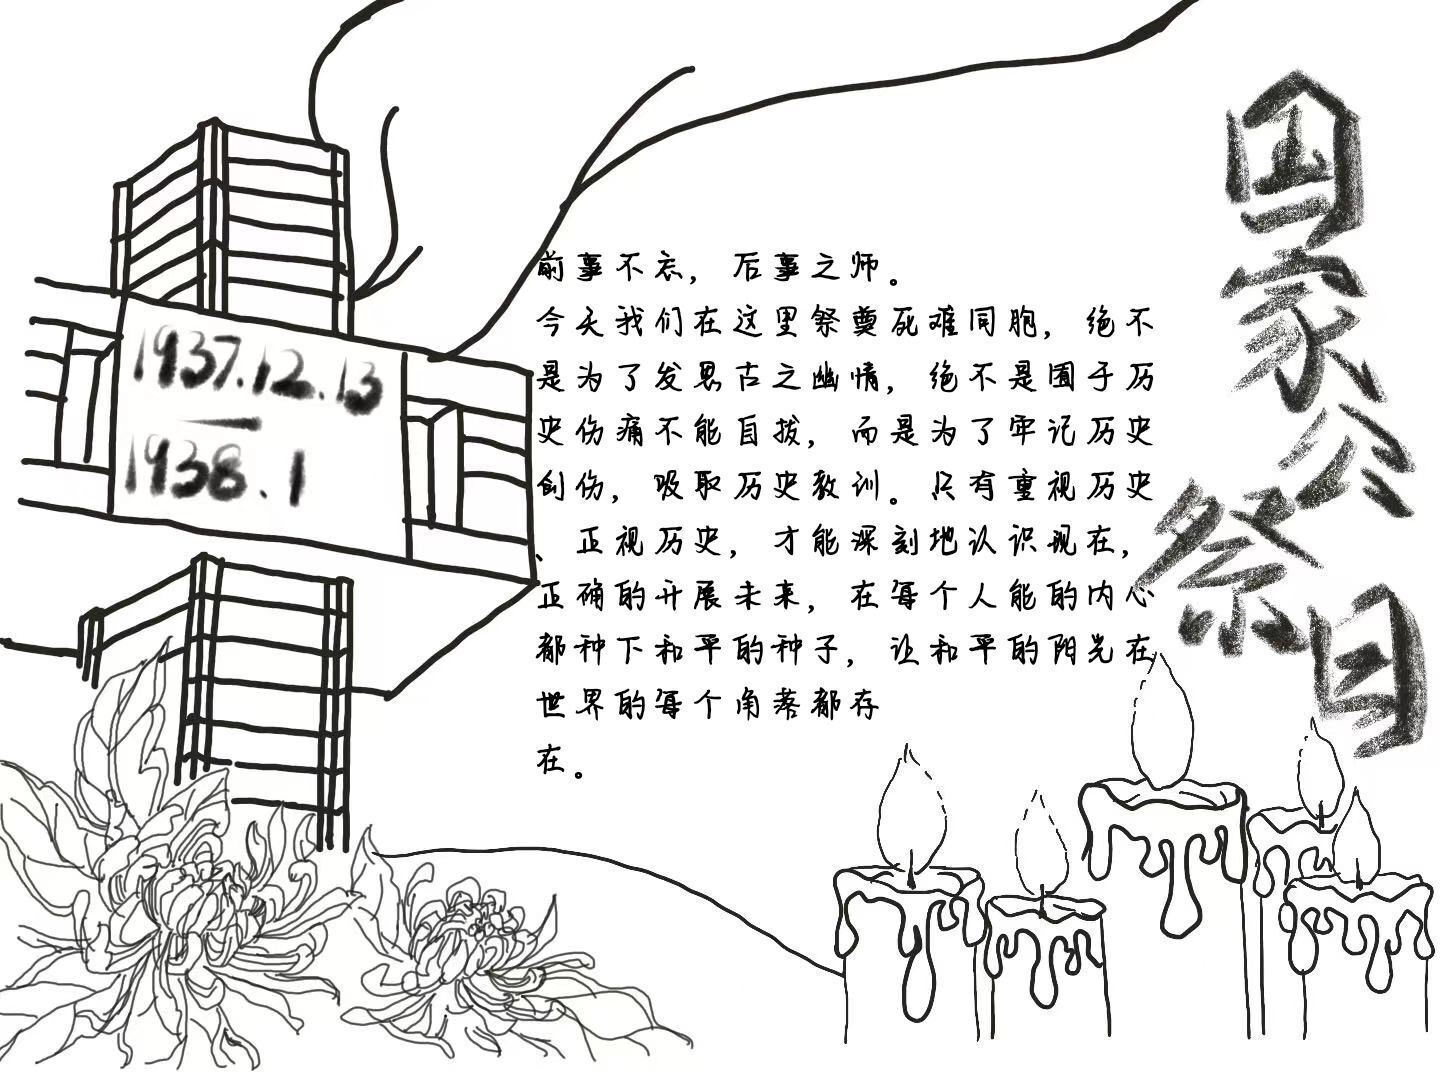 1937.12.13
—
1938.1
前事不忘，后事之师。
今天我们在这里祭奠死难同胞，绝不
是为了发思古之幽情，绝不是囿于历
史伤痛不能自拔，而是为了牢记历史
创伤，吸取历史教训。只有重视历史
、正视历史，才能深刻地认识现在，
正确的开展未来，在每个人能的内心
都种下和平的种子，让和平的阳光在
世界的每个角落都存
在。
国家公祭日